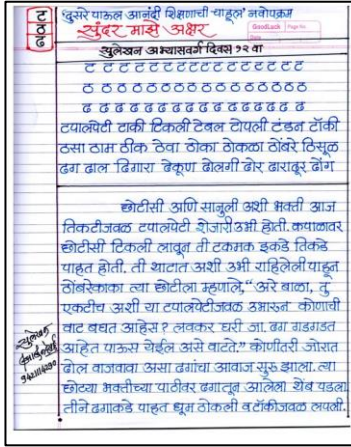 ट
ठ
ढ
दुसरे पाऊल आनंदी शिक्षणाची चाहूल नवोपक्रम
सुंदर माझे अक्षर
GoodLuck Page No
Date
सुलेखन अभ्यासवर्ग दिवस १२ वा
ट ट ट ट ट ट ट ट ट ट ट ट ट ट
ठ ठ ठ ठ ठ ठ ठ ठ ठ ठ ठ ठ ठ
ढ ढ ढ ढ ढ ढ ढ ढ ढ ढ ढ ढ ढ
टपालपेटी टाकी टिकली टेबल टोपली टंडन टॉकी
ठसा ठाम ठीक ठेवा ठोका ठोकळा ठोंबरे त्रिशूळ
ढग ढाल ढिगारा ढेकूण ढोलगी ढोर ढाराढूर ढोंग
छोटीसी आणि सानुली अशी भक्ती आज
तिकटीजवळ टपालपेटी शेजारी उभी होती. कपाळावर
छोटीसी टिकली लावून ती टकमक इकडे तिकडे
पाहत होती. ती थाटात अशी उभी राहिलेली पाहून
ठोंबरेकाका त्या छोटीला म्हणाले, "अरे बाळा, तु
एकटीच अशी या टपालपेटीजवळ उभारून कोणाची
वाट बघत आहेस? लवकर घरी जा. ढग गडगडत
आहेत पाऊस येईल असे वाटते." कोणीतरी जोरात
ढोल वाजवावा असा ढगांचा आवाज सुरू झाला. त्या
छोट्या भक्तीच्या पाठीवर ढगातून आलेला थेंब पडला
तीने ढगाकडे पाहत धूम ठोकली व टॉकीजवळ लपली.
सुलेखन